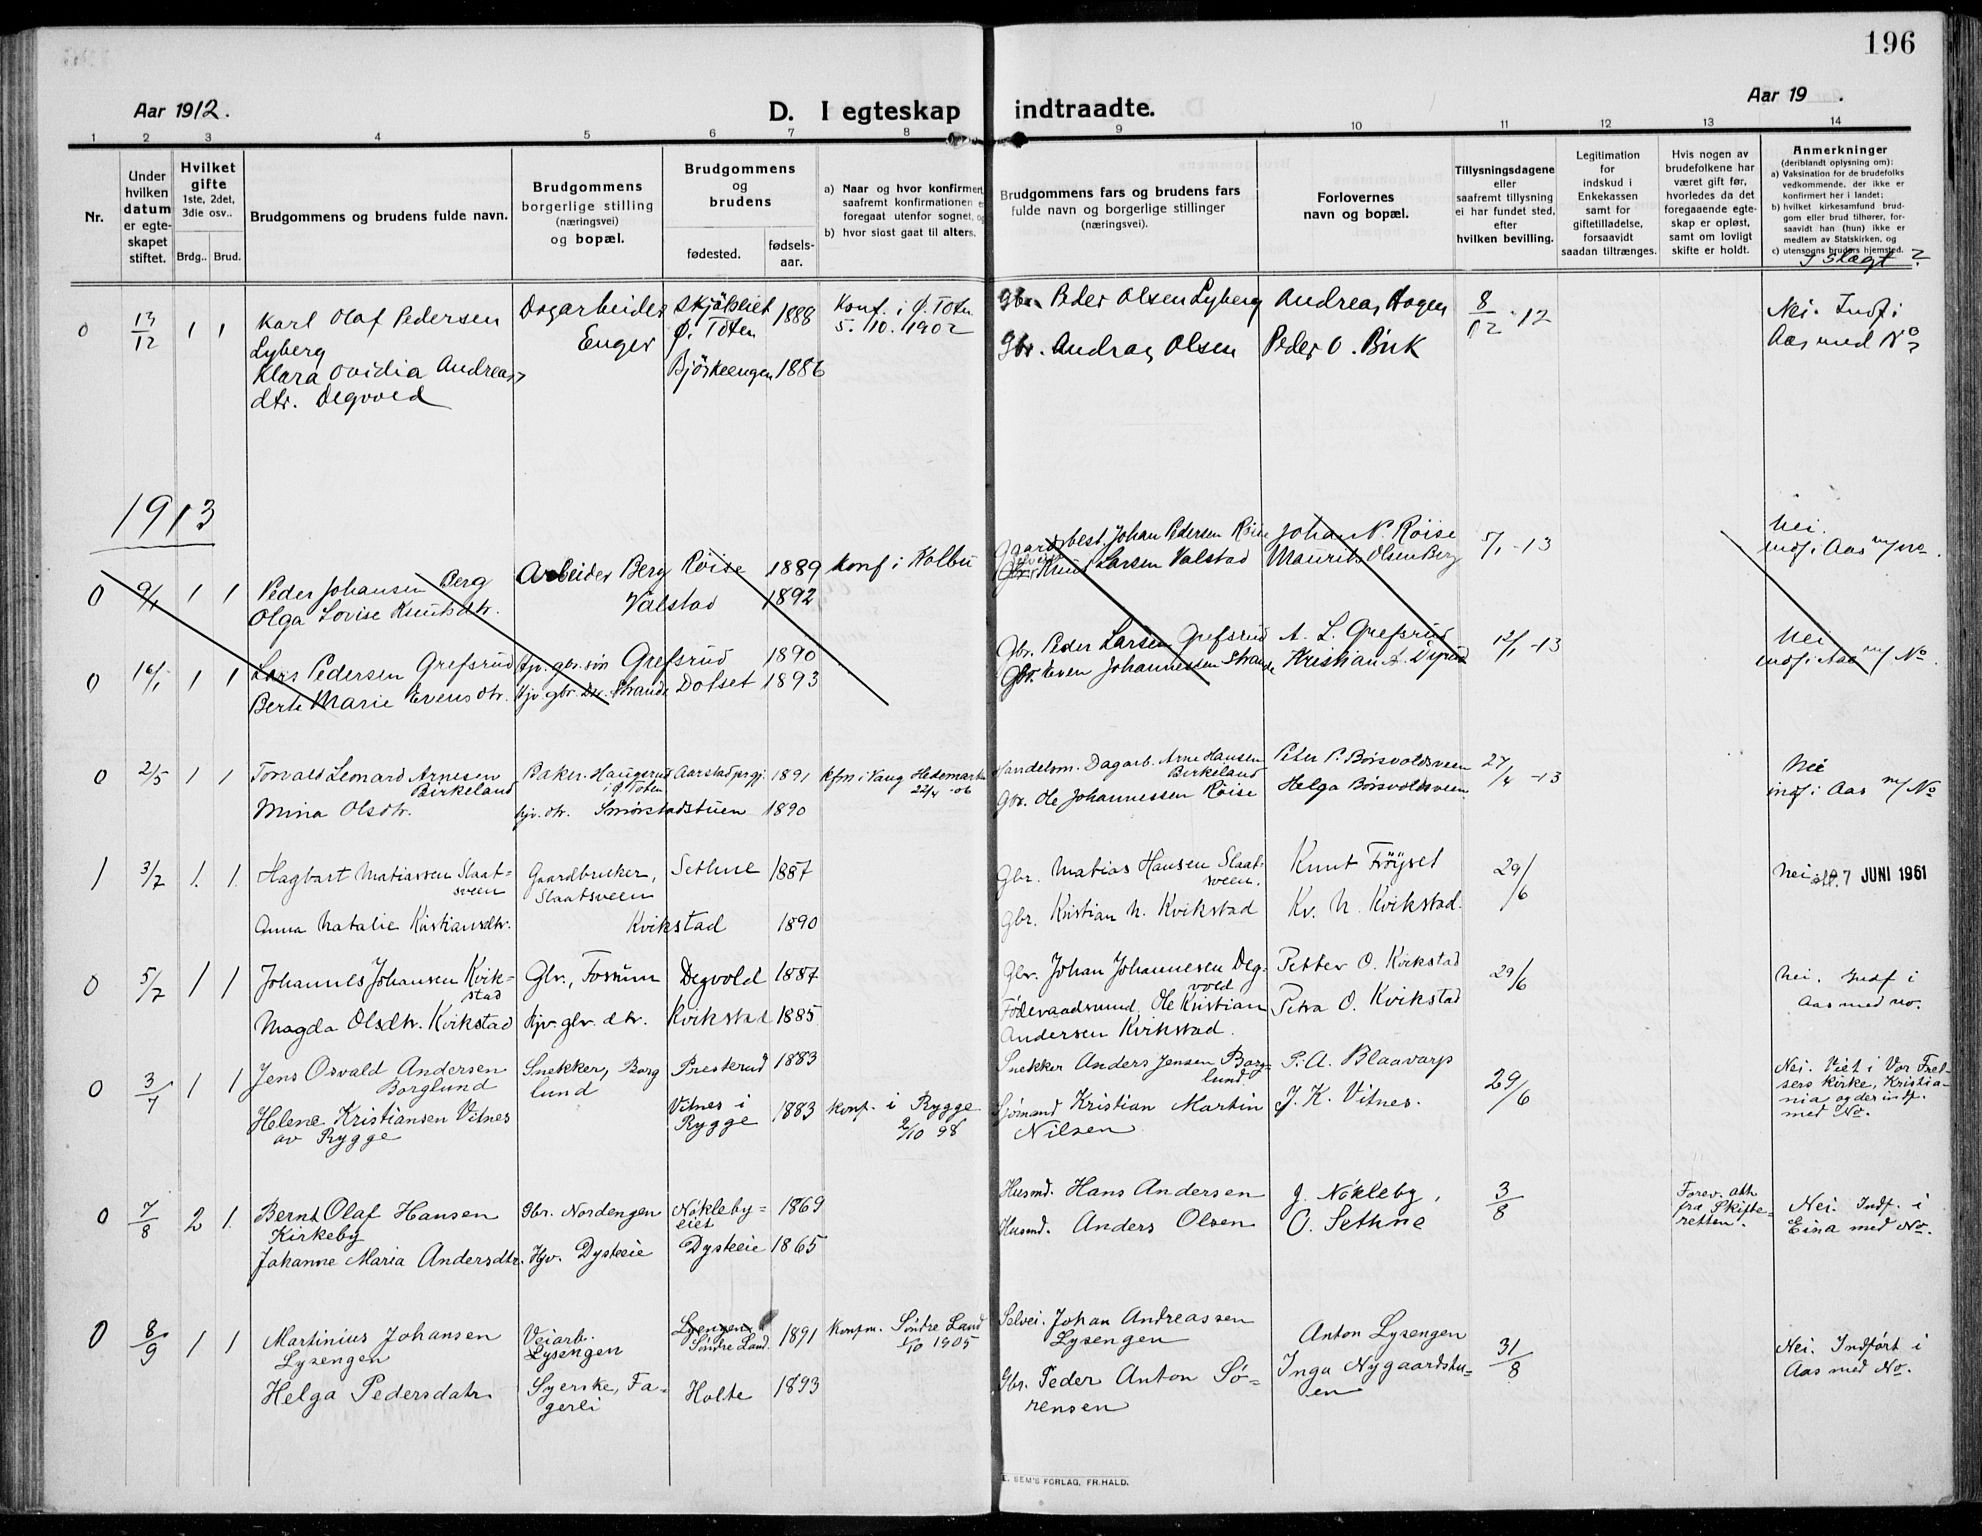 196
Aar 1912.
D. I egteskap indtraadte.
Aar 19 .
1 2 3 4 5 6 7 8 9 10 11 12 13 14
Nr.
Under hvilken datum er egte-skapet stiftet.
Hvilket gifte
1ste, 2det, 3die osv..
Brdg.. Brud.
Brudgommens og brudens fulde navn.
Brudgommens
borgerlige stilling
(næringsvei)
og bopæl.
Brudgommens
og
brudens
fødested.
fødsels-aar.
a) Naar og hvor konfirmert,
saafremt konfirmationen
foregaat utenfor sognet,
b) hvor sidst gaat til alters.
Brudgommens fars og brudens fars
fulde navn og borgerlige stillinger
(næringsvei).
Forlovernes
navn og bopæl.
Tillysningsdagene
eller
saafremt tillysning
ei har fundet sted,
efter
hvilken bevilling.
Legitimation
for
indskud i
Enkekassen
samt for
giftetilladelse,
forsaavidt
saadan tiltrænges.
Hvis nogen av
brudefolkene har
været gift før,
hvorledes da det
foregaaende egte-
skap er opløst,
samt om lovligt
skifte er holdt.
Anmerkninger
(deriblandt oplysning om):
a) Vaksination for de brudefolks
vedkommende, der ikke er
konfirmert her i landet;
b) hvilket kirkesamfund brud-
gom eller brud tilhører, for-
saavidt han (hun) ikke er
medlem av Statskirken, og
c) utensogns bruders hjemsted.
I slegt ?
0 13/12 1 1 Karl Olaf Pedersen
Lyberg
Klara Ovidia Andreas
dtr. Degvold
Dagarbeider
Enger
Ø. Toten
1888
Bjørkeengen 1886
Konf. i Ø. Toten
5. /10. /1902
Gbr. Peder Olsen Lyberg
Gbr. Andreas Olsen
Andreas Hagen
Peder O. Birk
8/12 - 12
Nei. Indf i
Aas med No
1913
0 9/1 1 1 Peder Johansen Berg
Olga Lovise Knutsdtr.
Arbeider Berg
Røise 1889
Valstad 1892
Konf i Kolbu
Gaardbest. Johan Pedersen Røise
Knud Larsen Valstad
Johan N. Røise
Maurits Olsen Berg
7/1 - 13
Nei.
indf i Aas m/ no.
0 16/1 1 1 Lars Pedersen Grefsrud
Berte Marie Evensdtr.
Hjv. gbr. søn Grefsrud 1890
Hjv. gbr. Dtr. Strande Dotset 1893
Gbr. Peder Larsen Grefsrud
Gbr. Even Johannessen Strande
A. L. Grefsrud
Kristian A. Dyrud
12/1 - 13
Nei
indf i Aas m/ No.
0 2/5 1 1 Torvald Leonard Arnesen
Birkeland
Mina Olsdtr.
Baker. Haugerud
i Ø Toten
Aarstad prgj. 1891
hjv. dtr. Smørstadstuen 1890
Kfm i Vang Hedemarken
22/4 - 06
Handelsm. Dagarb. Arne Hansen
Birkeland
Gbr. Ole Johannessen Røise
Peter P. Børsvoldsveen
Helga Børsvoldsveen
27/4 - 13
Nei
indf i Aas m/ No
1 3/7 1. 1. Hagbart Matiassen Slaat-
sveen
Anna Natalie Kristiansdtr.
Gaardbruker,
Slaatsveen
Sethne 1887
Kvikstad 1890
Gbr. Matias Hansen Slaat-
sveen.
Gbr. Kristian N. Kvikstad
Knut Frøyset
Kr. N. Kvikstad.
29/6
Nei 7 JUNI 1961
0 5/7 1 1 Johannes Johansen Kvik-
stad
Magda Olsdtr. Kvikstad
Gbr., Fossum
Hjv. gbr. dtr.
Degvold 1887
Kvikstad 1885
Gbr. Johan Johannesen Deg-
vold
Føderaadsmand, Ole Kristian
Andersen Kvikstad.
Petter O. Kvikstad
Petra O. Kvikstad
29/6
Nei. Indf i
Aas med no.
0 3/7 1 1 Jens Osvald Andersen
Borglund
Helene Kristiansen Vitnes
av Rygge
Snekker, Borg
lund
Presterud 1883
Vitnes i
Rygge
1883
Konf. i Rygge
2/10 98
Snekker Anders Jensen Borg-
lund.
Sjømand Kristian Martin
Nilsen
P. A. Blaavarp
J. K. Vitnes.
29/6
Nei. Viet i Vor Frel-
sers kirke, Kristia-
nia, og der indf.
med No.
0 7/8 2 1. Bernt Olaf Hansen
Kirkeby
Johanne Maria Andersdtr.
Gbr. Nordengen
Hjv. Dysteeie
Nøkleby-
eiet
1869
Dysteeie 1865
Husmd. Hans Andersen
Husmd. Anders Olsen
J. Nøkleby,
O. Sethne
3/8
Forev. att
fra Skifte-
retten.
Nei. Indf. i
Eina med No.
0 8/9 1 1 Martinius Johansen
Lysengen
Helga Pedersdatr
Veiarb.
Lysengen
Syerske, Fa-
gerli
Lysengen
Søndre Land. 1891
Holte 1893
Konfm. Søndre Land
1/10 1905
Selvei. Johan Andreassen
Lysengen
Gbr. Peder Anton Sø-
rensen
Anton Lysengen
Inga Nygaardstu-
en
31/8
Nei. Indført i
Aas med No.
E. SEM'S FORLAG, FR.HALD.